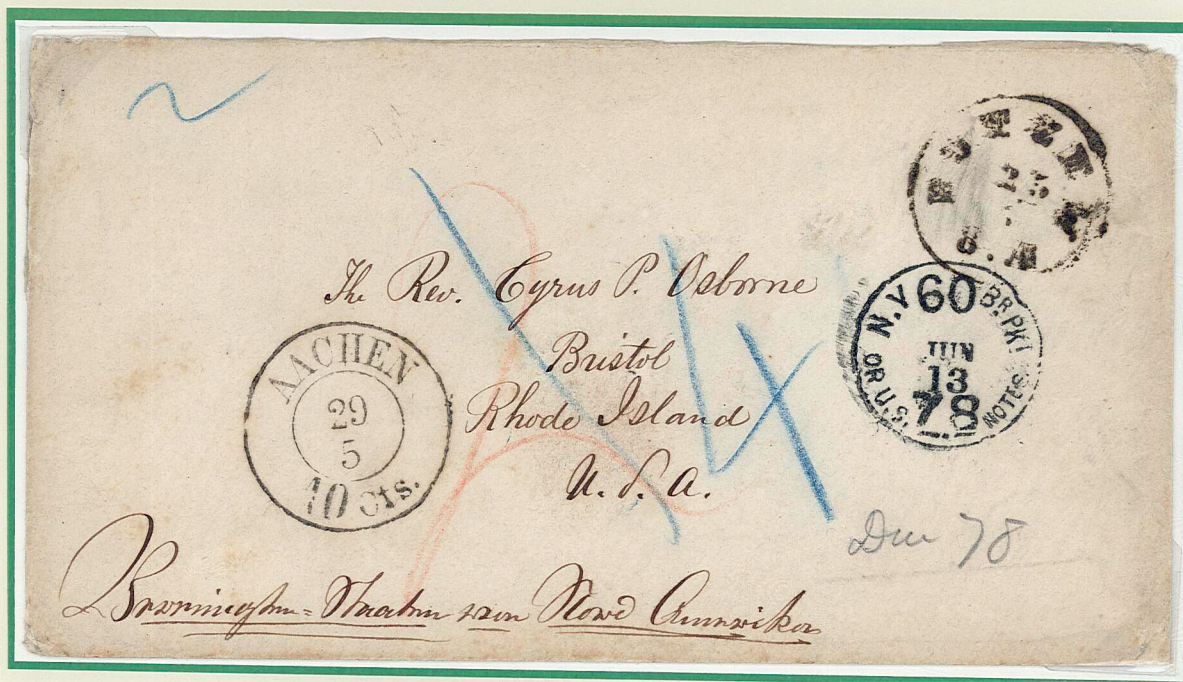 The Rev. Cyrus P. Osborne
Bristol
Rhode Island
U. S. A.
AACHEN
29
5
10 cts.
N.Y 60 BR.PKT
JUN
13
78
OR U.S. NOTES
Due 78
Vereinigten-Staaten von Nord Amerika
24